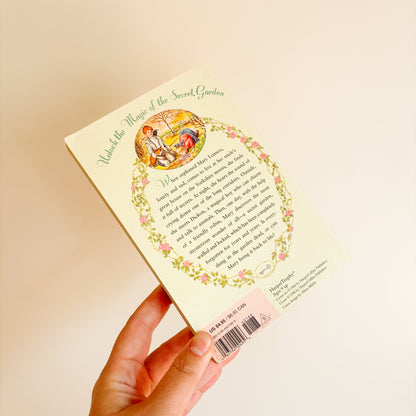 Unlock the Magic of the Secret Garden
When orphaned Mary Lennox,
lonely and sad, comes to live at her uncle's
great house on the Yorkshire moors, she finds
it full of secrets. At night, she hears the sound of
crying down one of the long corridors. Outside,
she meets Dickon, a magical boy who can charm
and talk to animals. Then, one day, with the help
of a friendly robin, Mary discovers the most
mysterious wonder of all—a secret garden,
walled and locked, which has been completely
forgotten for years and years. Is every-
thing in the garden dead, or can
Mary bring it back to life?
HarperTrophy®
Ages 9 up
US $4.95 / $6.50 CAN